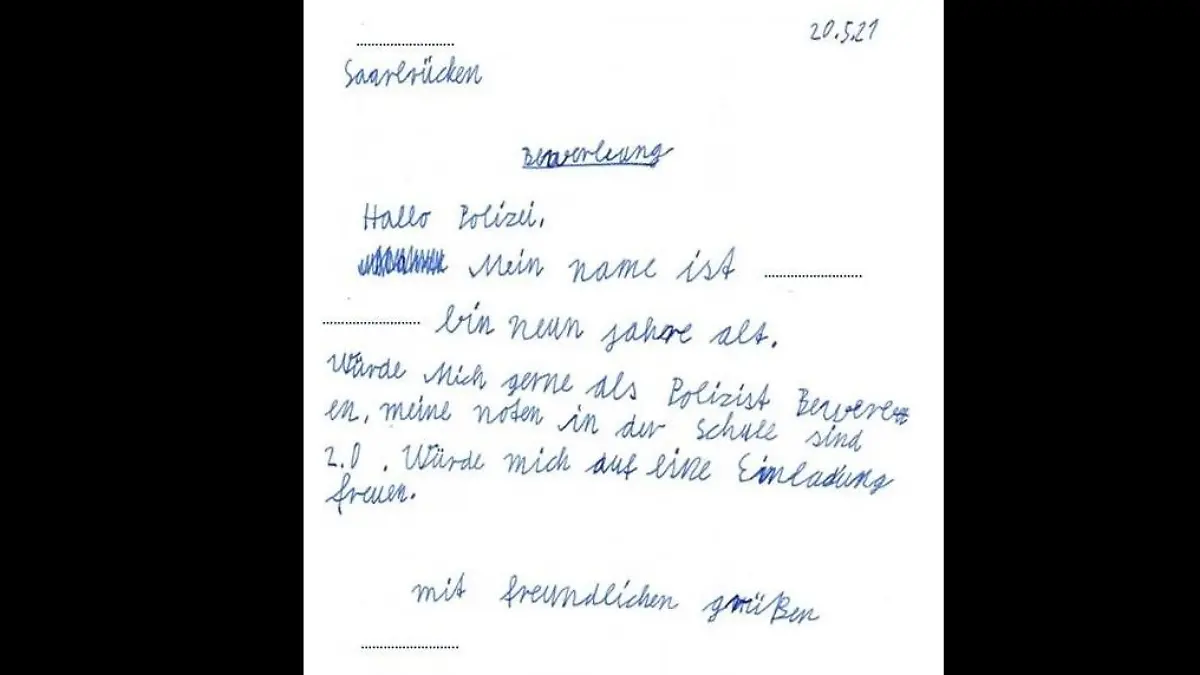 20.5.21
Saarbrücken
Bewerbung
Hallo Polizei.
Mein name ist
bin neun jahre alt.
Würde Mich gerne als Polizist Bewerb
en, meine noten in der Schule sind
2.0 . Würde mich auf eine Einladung
freuen.
mit freundlichen grüßen